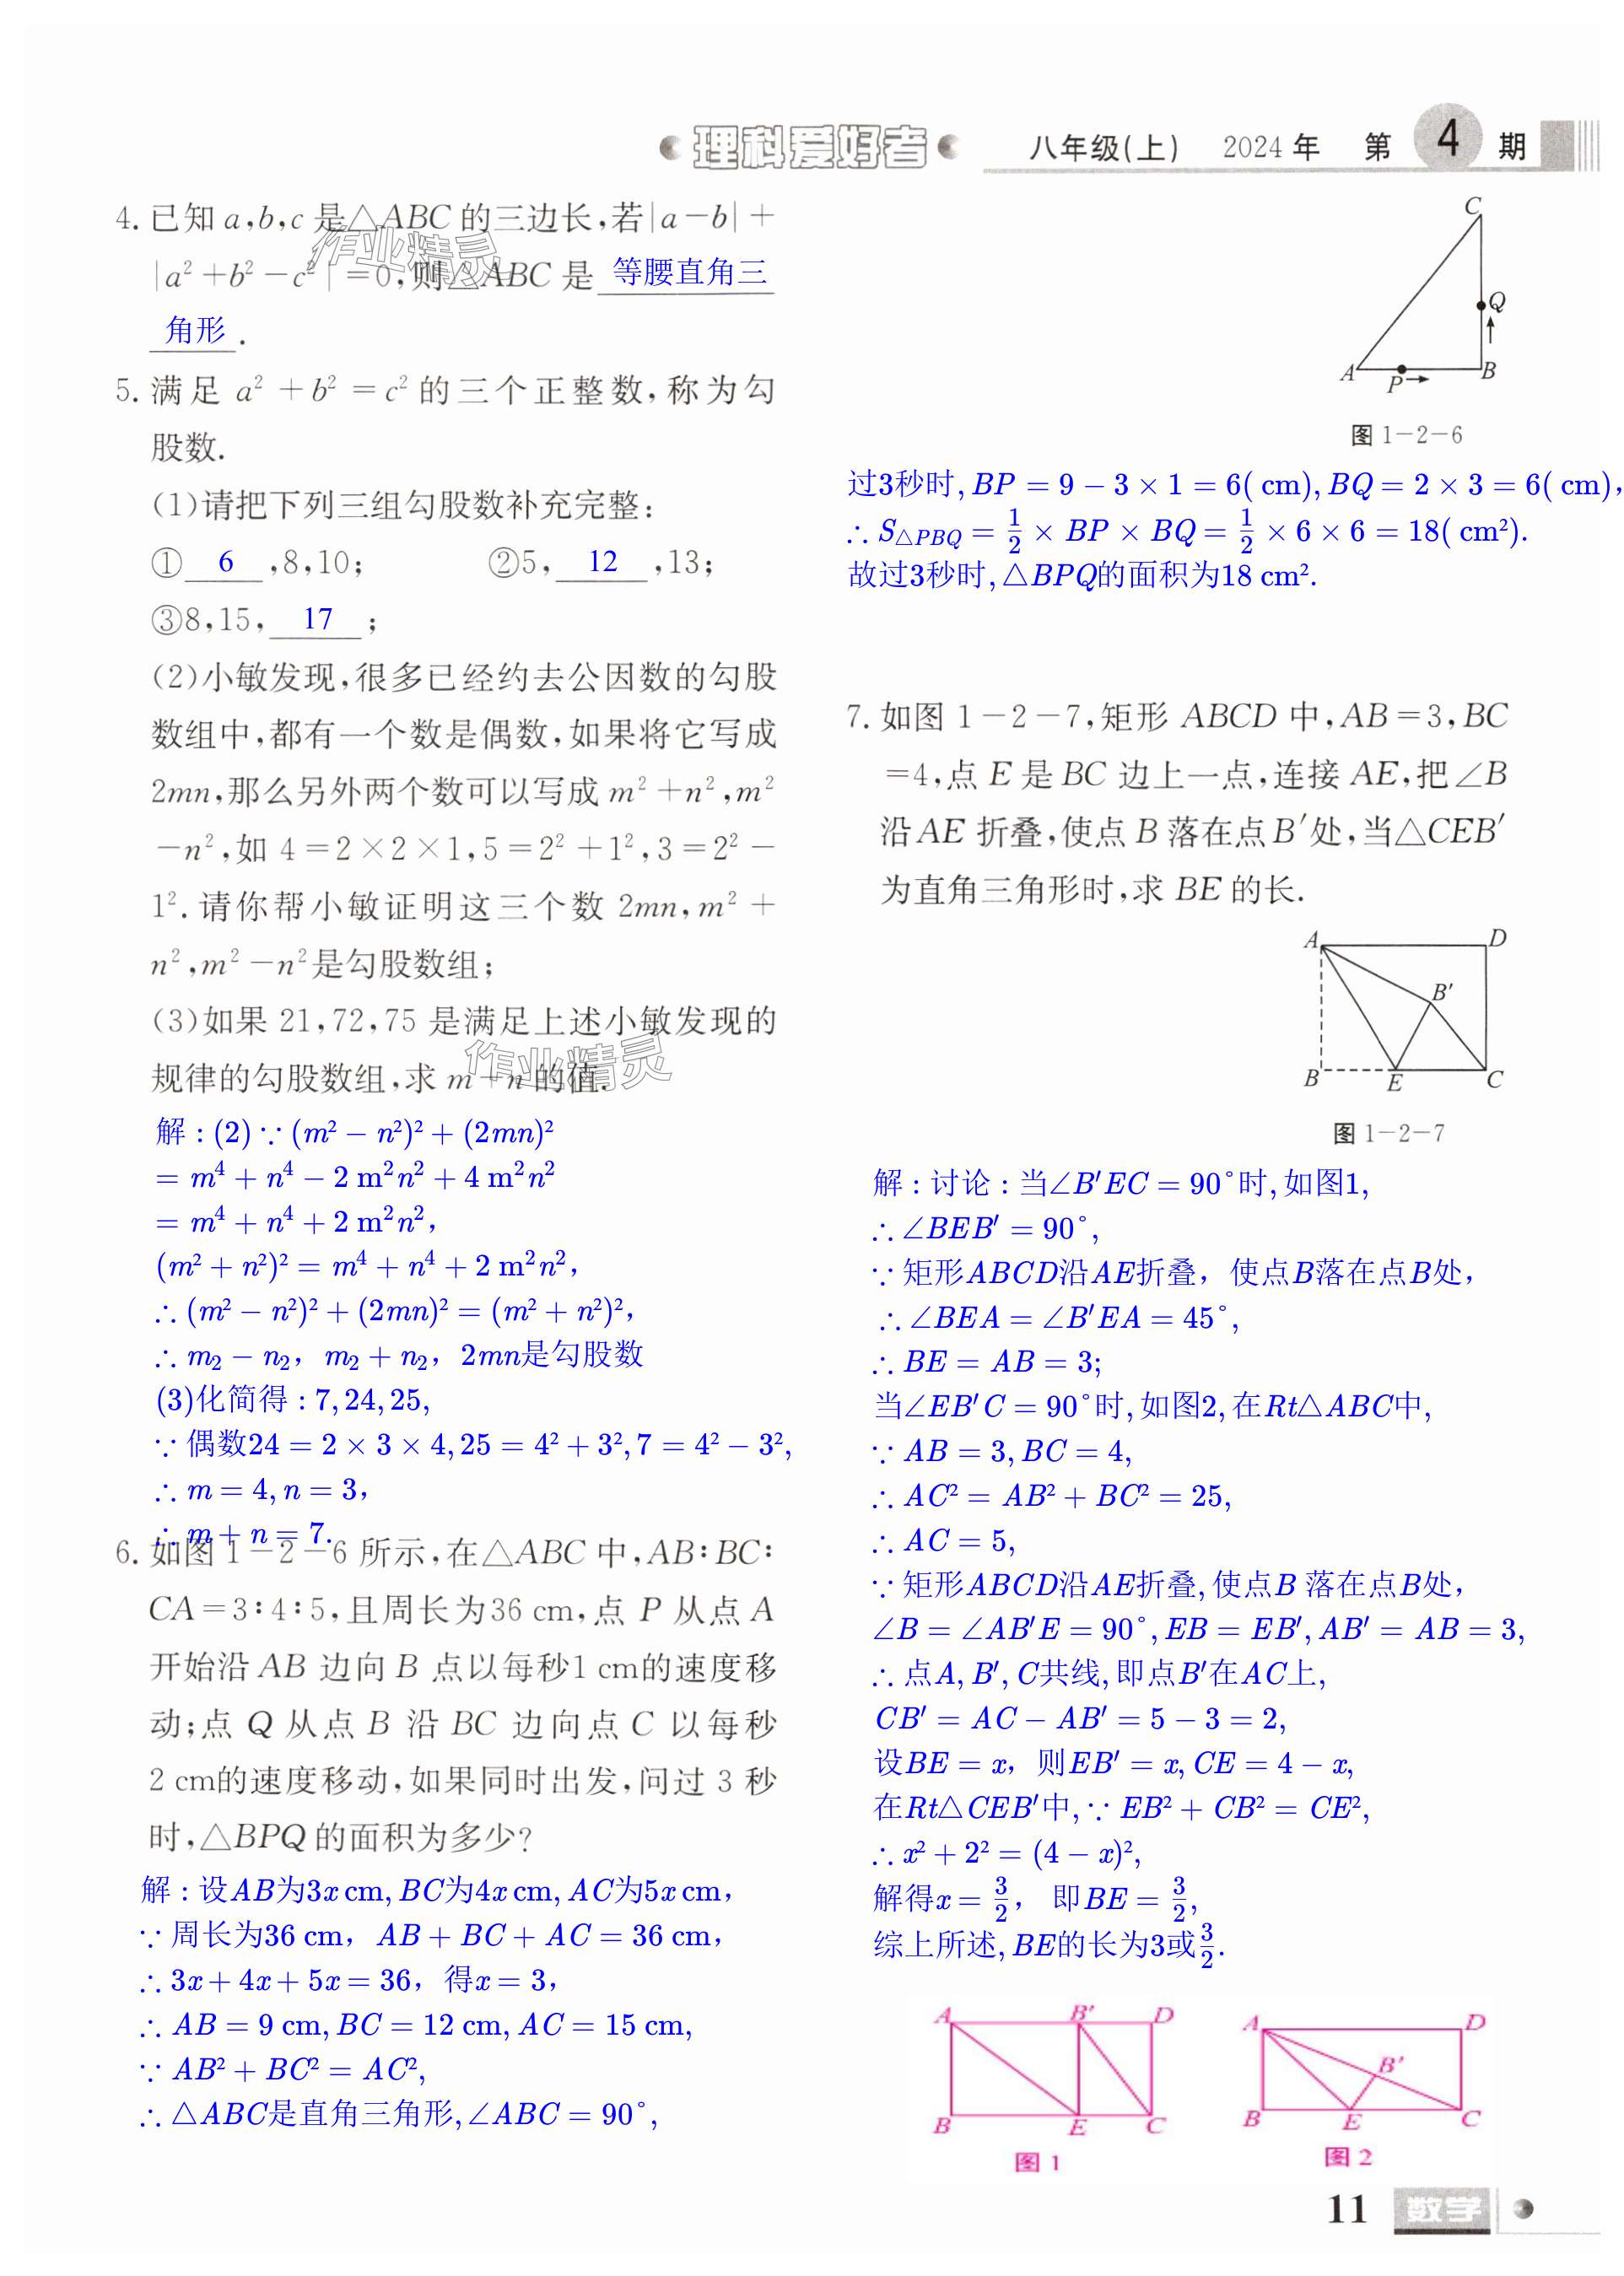 理科爱好者 八年级(上) 2024年 第4期
4. 已知a,b,c是△ABC的三边长,若|a-b|+
|a²+b²-c²|=0,则△ABC是 等腰直角三
角形 .
5. 满足 a²+b²=c² 的三个正整数,称为勾
股数.
(1)请把下列三组勾股数补充完整:
① 6 ,8,10; ②5, 12 ,13;
③8,15, 17 ;
(2)小敏发现,很多已经约去公因数的勾股
数组中,都有一个数是偶数,如果将它写成
2mn,那么另外两个数可以写成 m²+n²,m²
-n²,如 4=2×2×1,5=2²+1²,3=2²-
1².请你帮小敏证明这三个数 2mn,m²+
n²,m²-n²是勾股数组;
(3)如果 21,72,75 是满足上述小敏发现的
规律的勾股数组,求 m+n 的值.
作业精灵
作业精灵
解:(2)∵(m²-n²)²+(2mn)²
=m⁴+n⁴-2m²n²+4m²n²
=m⁴+n⁴+2m²n²,
(m²+n²)²=m⁴+n⁴+2m²n²,
∴(m²-n²)²+(2mn)²=(m²+n²)²,
∴m₂-n₂,m₂+n₂,2mn是勾股数
(3)化简得:7,24,25,
∵偶数24=2×3×4,25=4²+3²,7=4²-3²,
∴m=4,n=3,
∴m+n=7.
6. 如图 1-2-6 所示,在△ABC 中,AB:BC:
CA=3:4:5,且周长为36 cm,点 P 从点 A
开始沿 AB 边向 B 点以每秒1 cm的速度移
动;点 Q 从点 B 沿 BC 边向点 C 以每秒
2 cm的速度移动,如果同时出发,问过 3 秒
时,△BPQ 的面积为多少?
解:设AB为3x cm,BC为4x cm,AC为5x cm,
∵周长为36 cm,AB+BC+AC=36 cm,
∴3x+4x+5x=36,得x=3,
∴AB=9 cm,BC=12 cm,AC=15 cm,
∵AB²+BC²=AC²,
∴△ABC是直角三角形,∠ABC=90°,
C
Q
A P B
图 1-2-6
过3秒时,BP=9-3×1=6( cm),BQ=2×3=6( cm),
∴S△PBQ=1/2×BP×BQ=1/2×6×6=18( cm²).
故过3秒时,△BPQ的面积为18 cm².
7. 如图 1-2-7,矩形 ABCD 中,AB=3,BC
=4,点 E 是 BC 边上一点,连接 AE,把∠B
沿 AE 折叠,使点 B 落在点 B′处,当△CEB′
为直角三角形时,求 BE 的长.
A D
B′
B E C
图 1-2-7
解:讨论:当∠B′EC=90°时,如图1,
∴∠BEB′=90°,
∵矩形ABCD沿AE折叠,使点B落在点B处,
∴∠BEA=∠B′EA=45°,
∴BE=AB=3;
当∠EB′C=90°时,如图2,在Rt△ABC中,
∵AB=3,BC=4,
∴AC²=AB²+BC²=25,
∴AC=5,
∵矩形ABCD沿AE折叠,使点B 落在点B处,
∠B=∠AB′E=90°,EB=EB′,AB′=AB=3,
∴点A,B′,C共线,即点B′在AC上,
CB′=AC-AB′=5-3=2,
设BE=x,则EB′=x,CE=4-x,
在Rt△CEB′中,∵EB²+CB²=CE²,
∴x²+2²=(4-x)²,
解得x=3/2, 即BE=3/2,
综上所述,BE的长为3或3/2.
A B′ D
B E C
图 1
A D
B′
B E C
图 2
11 数学